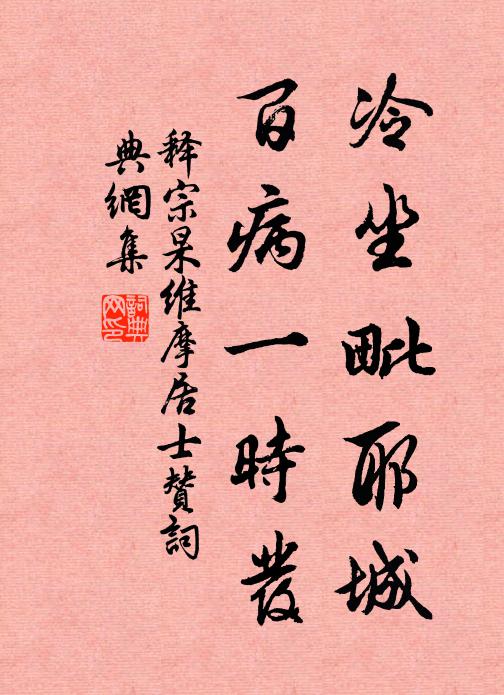 冷坐毗耶城
百病一時發
釋宗杲維摩居士贊詞
典網集
詞典网印